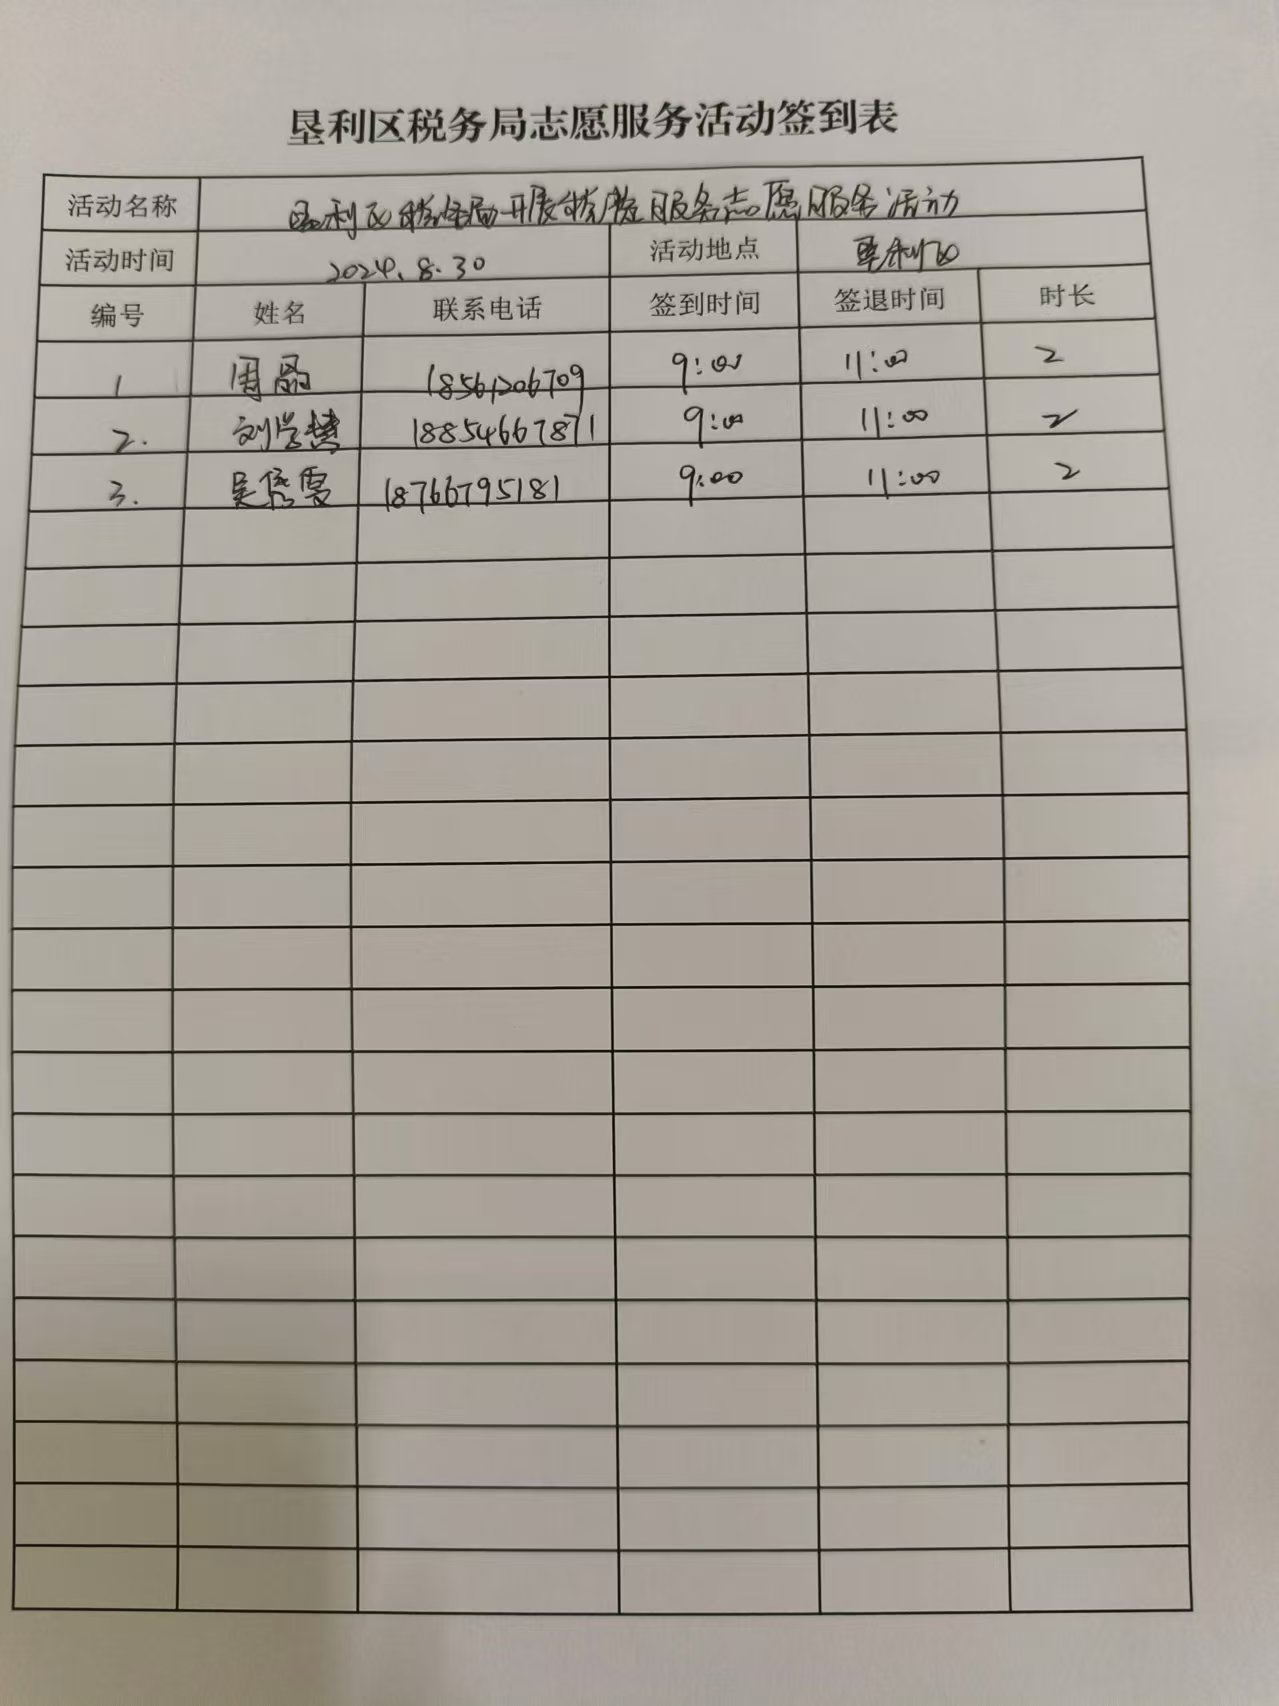 垦利区税务局志愿服务活动签到表
活动名称 垦利区税务局开展税费服务志愿服务活动
活动时间 2024.8.30 活动地点 垦利区
编号 姓名 联系电话 签到时间 签退时间 时长
1 周晶 18561206709 9:00 11:00 2
2. 刘学慧 18854667871 9:00 11:00 2
3. 吴 18766795181 9:00 11:00 2